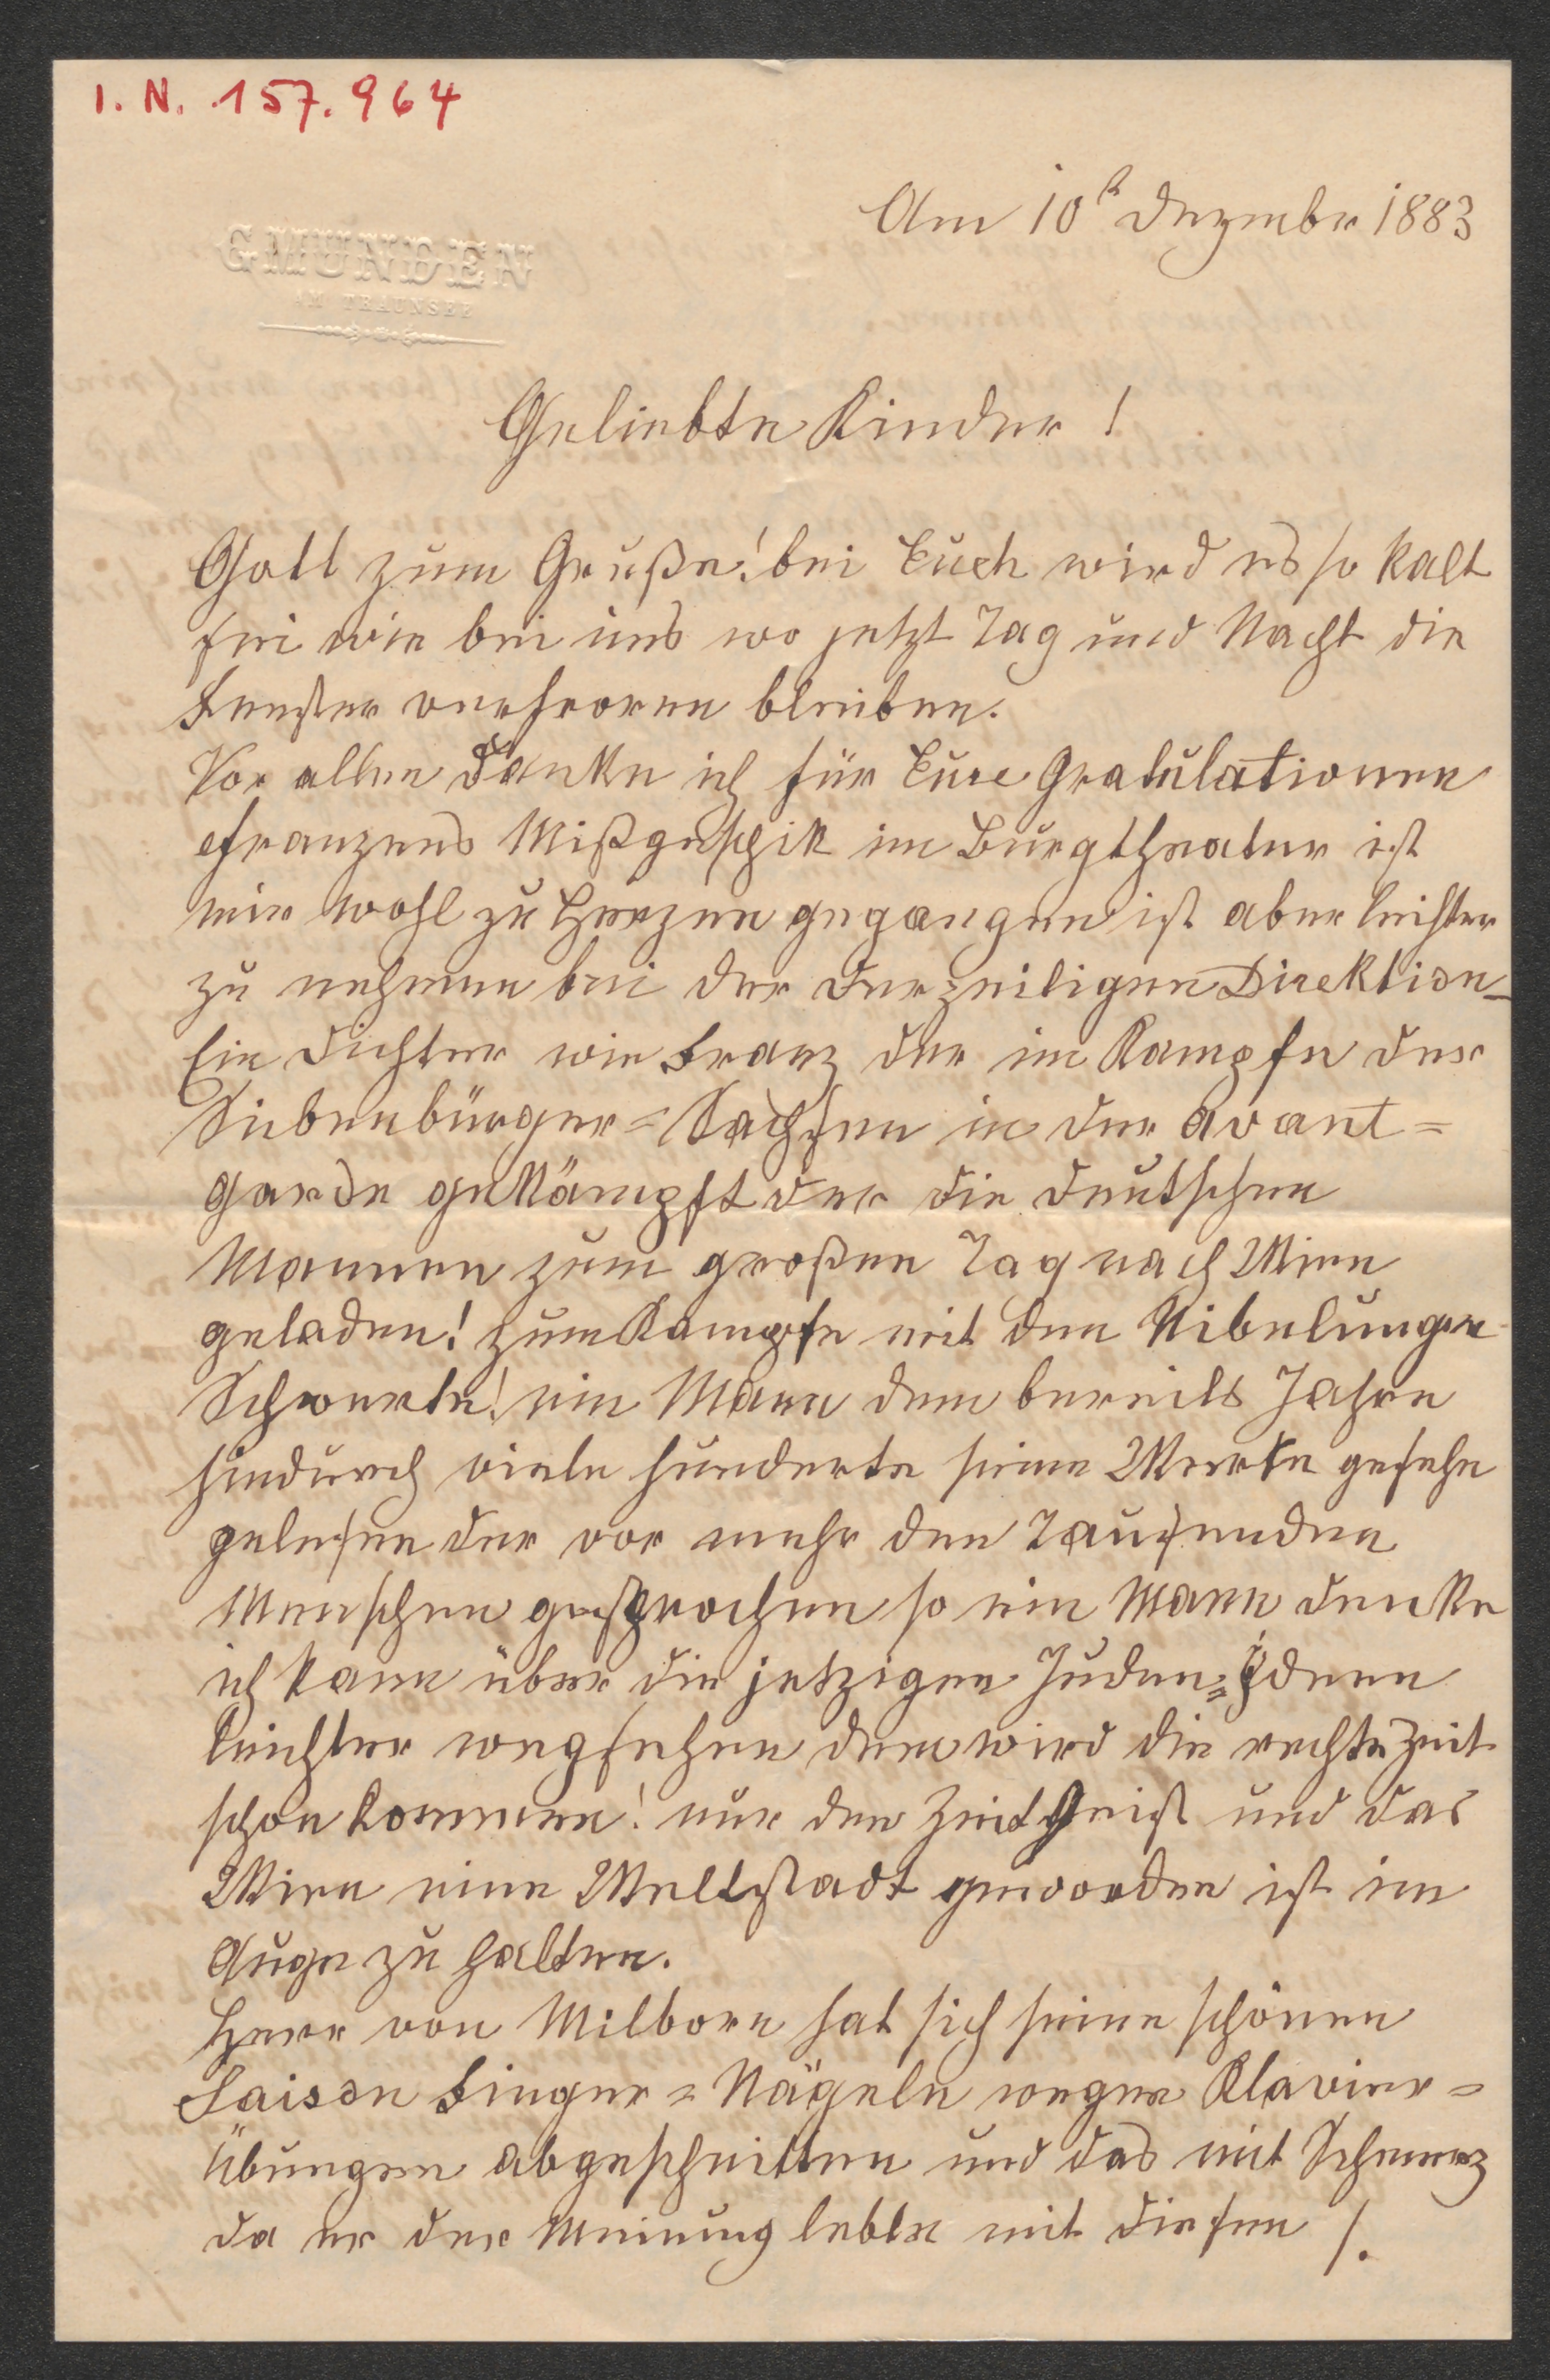 I. N. 157.964
Am 10t Dezember 1883
GMUNDEN
AM TRAUNSEE
Geliebte Kinder!
Gott zum Gruße! bei Euch wird es so kalt
sei wie bei uns wo jetzt Tag und Nacht die
Fenster verfroren bleiben.
Vor allen danke ich für Eure Gratulationen
Franzens Mißgeschik im Burgtheater ist
mir wohl zu Herzen gegangen ist aber leichter
zu nehmen bei der derzeitigen Direktion_
Ein Dichter wie Franz der im Kampfe der
Siebenbürger=Sachsen in der avant=
garde gekämpft der die deutschen
Mannen zum großen Tag nach Wien
geladen! zum Kampfe mit den Nibelungen
Schwerte! ein Mann dem bereits Jahre
hindurch viele hunderte seine Werke gesehn
gelesen der vor mehr den Tausenden
Menschen gesprochen so ein Mann denke
ich kann über die jetzigen Juden=Ideen
leichter wegsehen denn wird die rechte Zeit
schon kommen! nur den Zeitgeist und das
Wien eine Weltstadt geworden ist im
Auge zu halten.
Herr von Milborn hat sich seine schönen
Saison Finger=Nägeln wegen Klavier=
Übungen abgeschnitten und das mit Schmerz
da er der Meinung lebte mit diesen /.